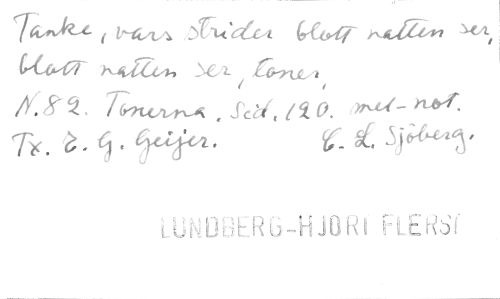 Tanke, vars strider blott natten ser,
blott natten ser, toner,
N.82. Tonerna. Sid. 120. mel-not.
Tx. E. G. Geijer. C. L. Sjöberg.
LUNDBERG-HJORT FLERST